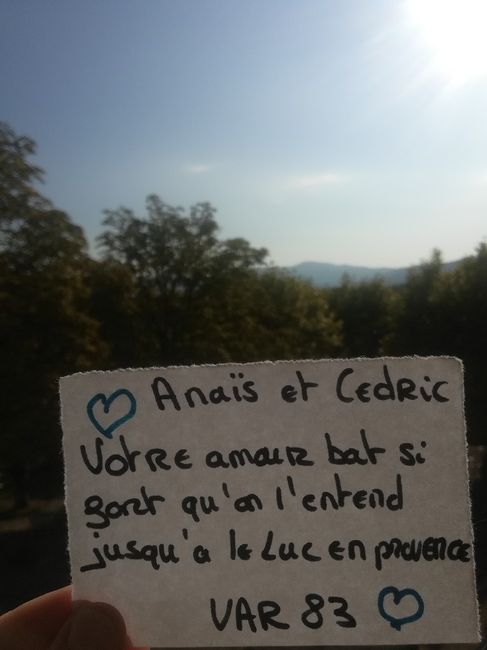 Anaïs et Cedric
Votre amour bat si
fort qu'on l'entend
jusqu'a le Luc en provence
VAR 83